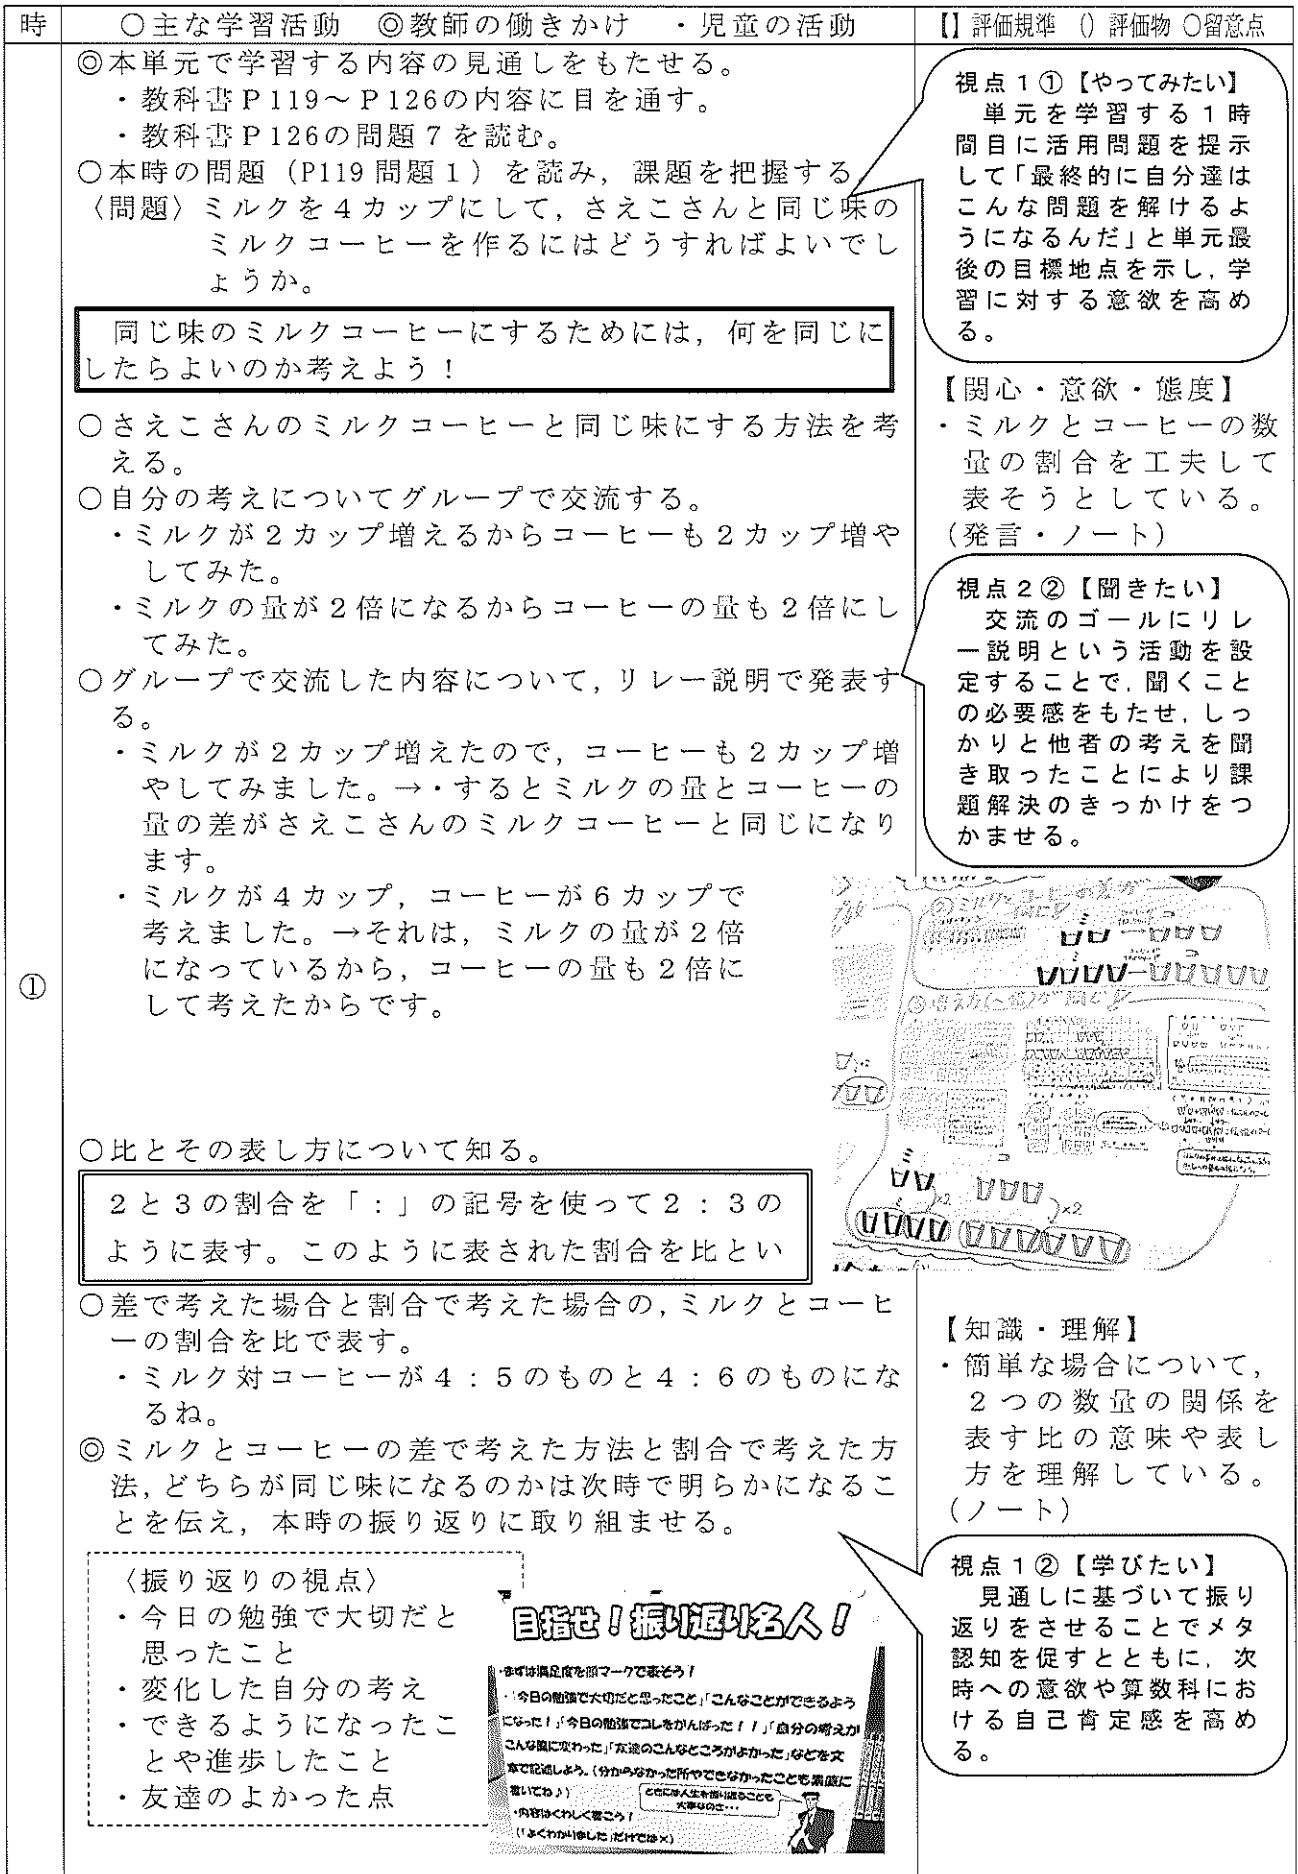 時
○主な学習活動　◎教師の働きかけ　・児童の活動
【】評価規準　()評価物　○留意点
①
◎本単元で学習する内容の見通しをもたせる。
・教科書P119～P126の内容に目を通す。
・教科書P126の問題7を読む。
○本時の問題（P119問題1）を読み，課題を把握する。
〈問題〉ミルクを4カップにして，さえこさんと同じ味の
ミルクコーヒーを作るにはどうすればよいでし
ょうか。
同じ味のミルクコーヒーにするためには，何を同じに
したらよいのか考えよう！
○さえこさんのミルクコーヒーと同じ味にする方法を考
える。
○自分の考えについてグループで交流する。
・ミルクが2カップ増えるからコーヒーも2カップ増や
してみた。
・ミルクの量が2倍になるからコーヒーの量も2倍にし
てみた。
○グループで交流した内容について，リレー説明で発表す
る。
・ミルクが2カップ増えたので，コーヒーも2カップ増
やしてみました。→・するとミルクの量とコーヒーの
量の差がさえこさんのミルクコーヒーと同じになり
ます。
・ミルクが4カップ，コーヒーが6カップで
考えました。→それは，ミルクの量が2倍
になっているから，コーヒーの量も2倍に
して考えたからです。
○比とその表し方について知る。
2と3の割合を「：」の記号を使って2：3の
ように表す。このように表された割合を比とい
○差で考えた場合と割合で考えた場合の，ミルクとコーヒ
ーの割合を比で表す。
・ミルク対コーヒーが4：5のものと4：6のものにな
るね。
◎ミルクとコーヒーの差で考えた方法と割合で考えた方
法，どちらが同じ味になるのかは次時で明らかになるこ
とを伝え，本時の振り返りに取り組ませる。
〈振り返りの視点〉
・今日の勉強で大切だと
思ったこと
・変化した自分の考え
・できるようになったこ
とや進歩したこと
・友達のよかった点
目指せ！振り返り名人！
・まずは満足度を顔マークで表そう！
・「今日の勉強で大切だと思ったこと」「こんなことができるよう
になった！」「今日の勉強でコレをがんばった！！」「自分の考えが
こんな風に変わった」「友達のこんなところがよかった」などを文
章で記述しよう。（分からなかった所やできなかったことも素直に
書いてね♪）
ときには人生を振り返ることも
大事なのさ・・・
・内容はくわしく書こう！
（「よくわかりました」だけでは×）
視点1①【やってみたい】
単元を学習する1時
間目に活用問題を提示
して「最終的に自分達は
こんな問題を解けるよ
うになるんだ」と単元最
後の目標地点を示し，学
習に対する意欲を高め
る。
【関心・意欲・態度】
・ミルクとコーヒーの数
量の割合を工夫して
表そうとしている。
（発言・ノート）
視点2②【聞きたい】
交流のゴールにリレ
ー説明という活動を設
定することで，聞くこと
の必要感をもたせ，しっ
かりと他者の考えを聞
き取ったことにより課
題解決のきっかけをつ
かませる。
ミ
×2
×2
【知識・理解】
・簡単な場合について，
2つの数量の関係を
表す比の意味や表し
方を理解している。
（ノート）
視点1②【学びたい】
見通しに基づいて振り
返りをさせることでメタ
認知を促すとともに，次
時への意欲や算数科にお
ける自己肯定感を高め
る。